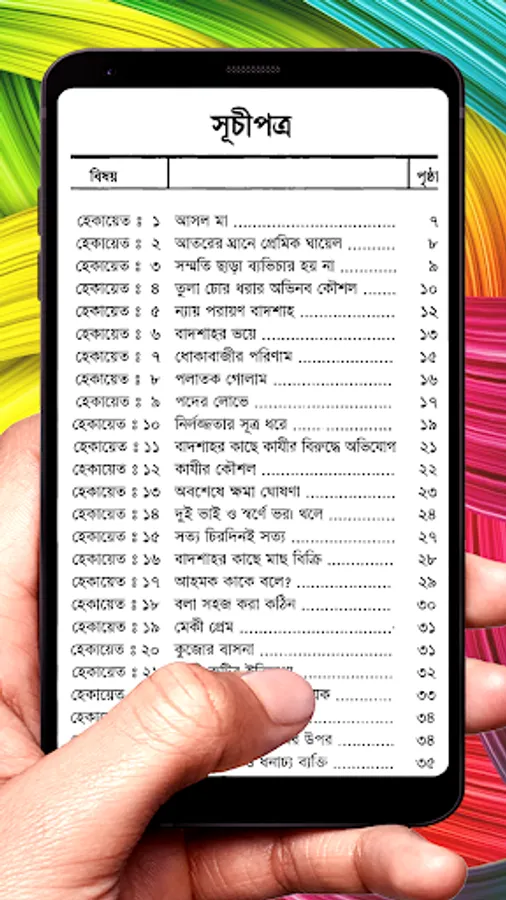 সূচীপত্র
বিষয় পৃষ্ঠা
হেকায়েত ঃ ১ আসল মা .......................................... ৭
হেকায়েত ঃ ২ আতরের ঘ্রানে প্রেমিক ঘায়েল ............ ৮
হেকায়েত ঃ ৩ সম্মতি ছাড়া ব্যভিচার হয় না .............. ৯
হেকায়েত ঃ ৪ তুলা চোর ধরার অভিনব কৌশল ........ ১০
হেকায়েত ঃ ৫ ন্যায় পরায়ণ বাদশাহ ........................ ১২
হেকায়েত ঃ ৬ বাদশাহর ভয়ে .................................. ১৩
হেকায়েত ঃ ৭ ধোকাবাজীর পরিণাম ........................ ১৫
হেকায়েত ঃ ৮ পলাতক গোলাম .............................. ১৬
হেকায়েত ঃ ৯ পদের লোভে .................................... ১৭
হেকায়েত ঃ ১০ নির্লজ্জতার সূত্র ধরে ........................ ১৯
হেকায়েত ঃ ১১ বাদশাহর কাছে কাযীর বিরুদ্ধে অভিযোগ ২১
হেকায়েত ঃ ১২ কাযীর কৌশল .................................. ২২
হেকায়েত ঃ ১৩ অবশেষে ক্ষমা ঘোষণা ...................... ২৩
হেকায়েত ঃ ১৪ দুই ভাই ও স্বর্ণে ভরা থলে ................ ২৪
হেকায়েত ঃ ১৫ সত্য চিরদিনই সত্য .......................... ২৭
হেকায়েত ঃ ১৬ বাদশাহর কাছে মাছ বিক্রি ................ ২৮
হেকায়েত ঃ ১৭ আহমক কাকে বলে? ........................ ২৯
হেকায়েত ঃ ১৮ বলা সহজ করা কঠিন ...................... ৩০
হেকায়েত ঃ ১৯ মেকী প্রেম ...................................... ৩১
হেকায়েত ঃ ২০ কুজোর বাসনা .................................. ৩১
হেকায়েত ঃ ........................ ৩২
হেকায়েত .............. ৩৩
৩৪
উপর .............. ৩৪
ও ধনাঢ্য ব্যক্তি ................ ৩৫